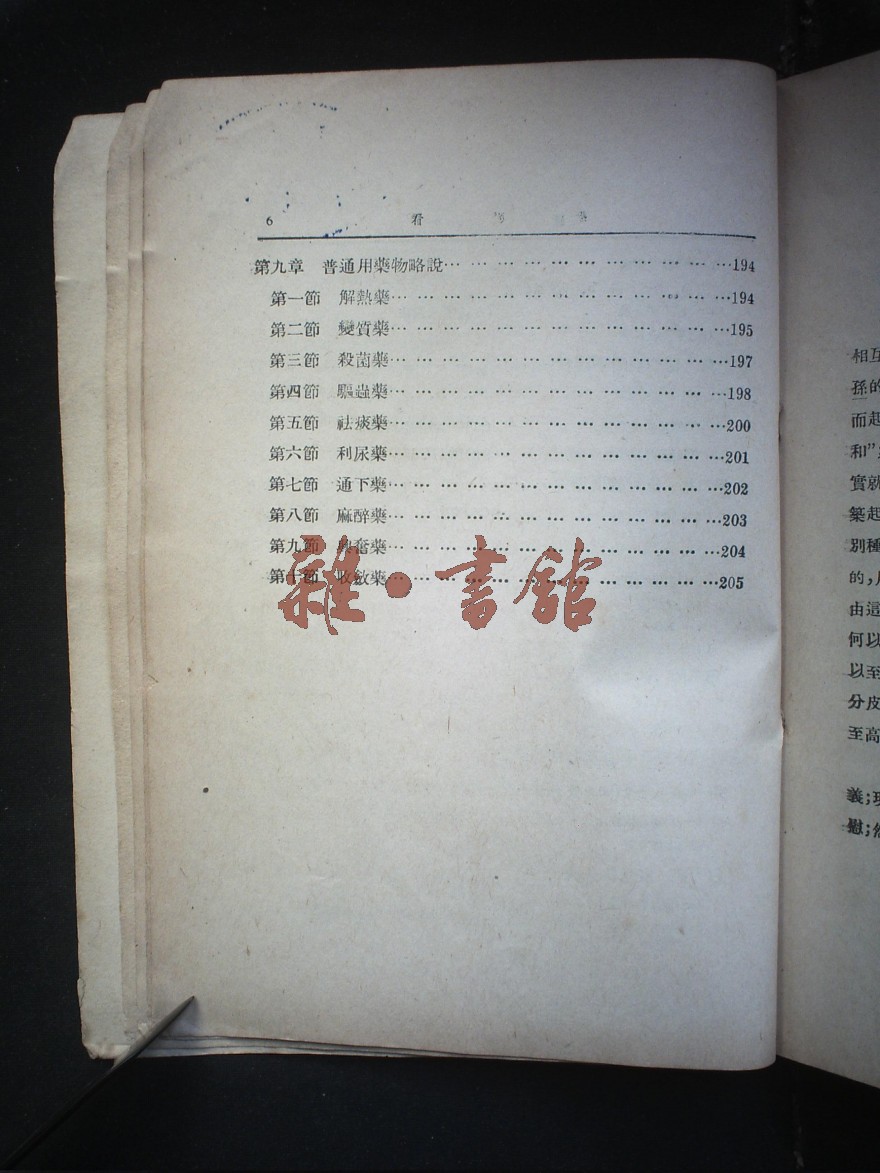 6 看
第九章 普通用藥物略說… … … … … … … … … … …194
第一節 解熱藥… … … … … … … … … … … … …194
第二節 變質藥… … … … … … … … … … … … …195
第三節 殺菌藥… … … … … … … … … … … … …197
第四節 驅蟲藥… … … … … … … … … … … … …198
第五節 祛痰藥… … … … … … … … … … … … …200
第六節 利尿藥… … … … … … … … … … … … …201
第七節 通下藥… … … … … … … … … … … … …202
第八節 麻醉藥… … … … … … … … … … … … …203
第九節 興奮藥… … … … … … … … … … … … …204
第十節 收斂藥… … … … … … … … … … … … …205
雜·書館
相互
孫的
而起
和”
實就
築起
別種
的，
由這
何以
以至
分皮
至高
義；
慰；